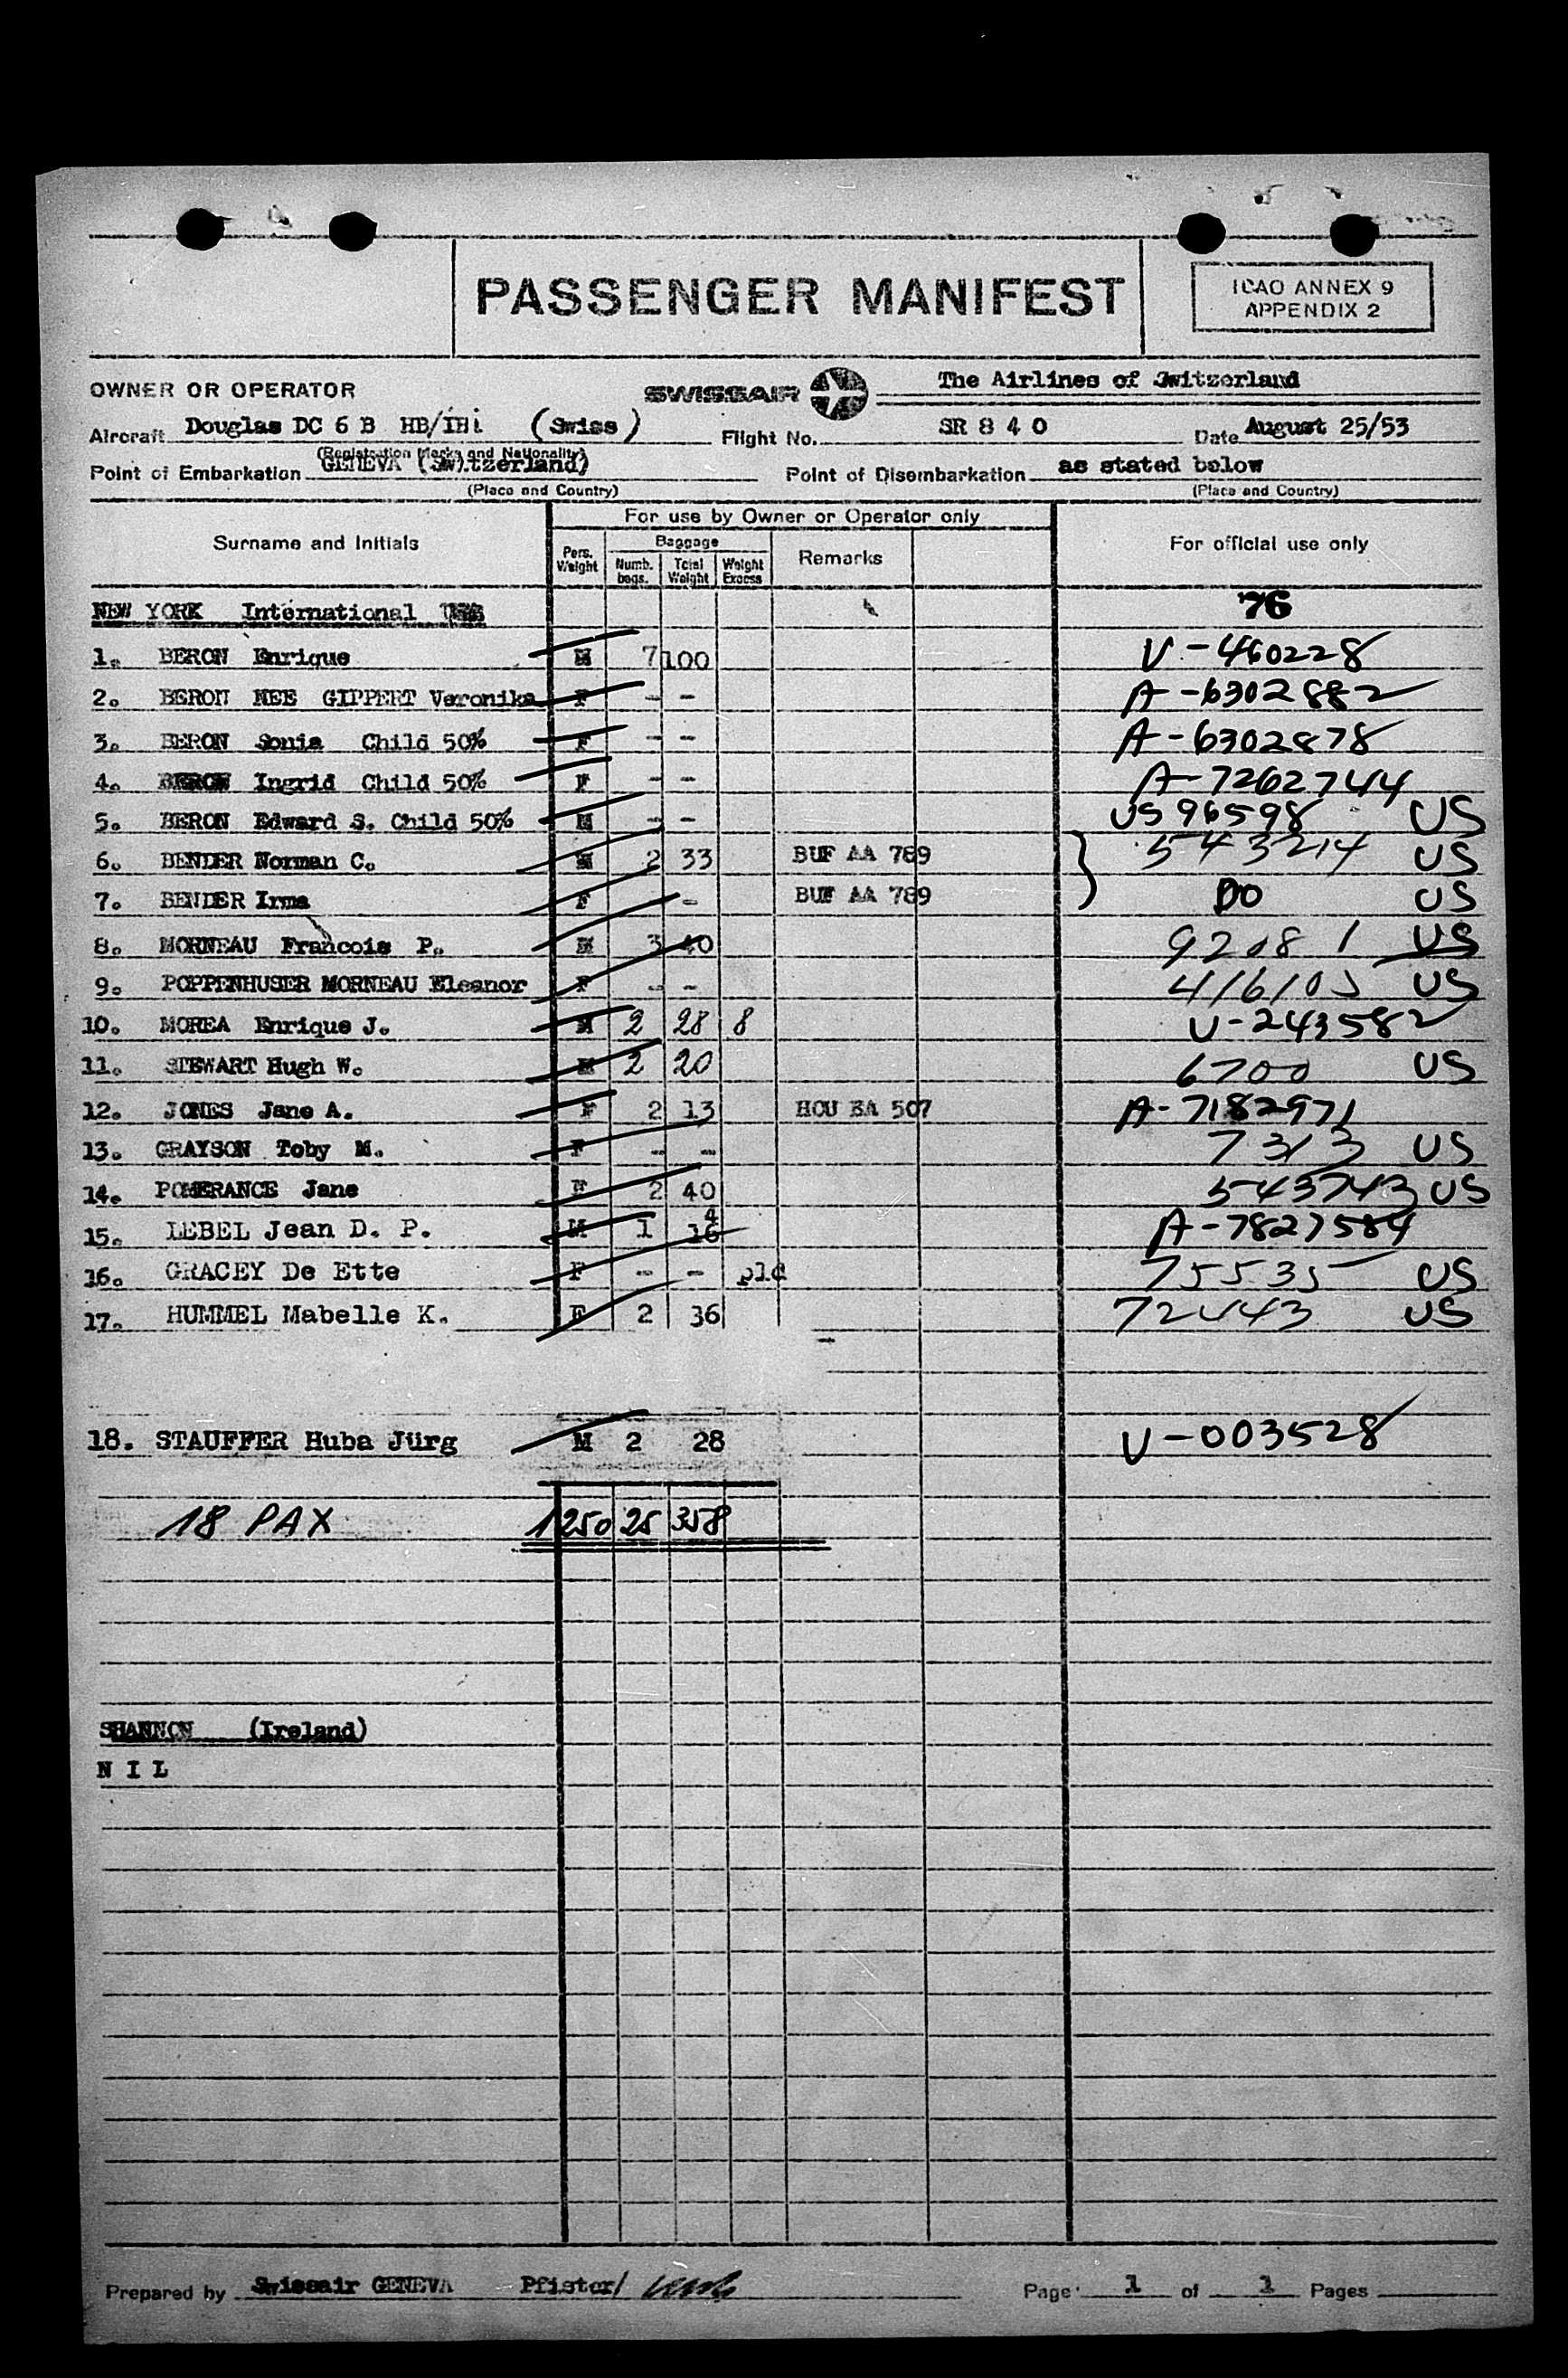 PASSENGER MANIFEST
ICAO ANNEX 9
APPENDIX 2
OWNER OR OPERATOR SWISSAIR The Airlines of Switzerland
Aircraft Douglas DC 6 B HB/IBi (Swiss) Flight No. SR 8 4 0 Date August 25/53
(Registration Marks and Nationality)
Point of Embarkation GENEVA (Switzerland) Point of Disembarkation as stated below
(Place and Country) (Place and Country)
For use by Owner or Operator only
Surname and Initials Pers. Weight Baggage Numb. bags. Total Weight Weight Excess Remarks For official use only
NEW YORK International 76
1. BERON Enrique M 7 100 V-460228
2. BERON NEE GIPPERT Veronika F - - A-6302882
3. BERON Sonia Child 50% F - - A-6302878
4. BERON Ingrid Child 50% F - - A-7262744
5. BERON Edward S. Child 50% M - - US 96598 US
6. BENDER Norman C. M 2 33 BUF AA 789 543214 US
7. BENDER Irma F - BUF AA 789 DO US
8. MORNEAU Francois P. M 3 40 92081 US
9. POPPENHUSER MORNEAU Eleanor F - - US
10. MOREA Enrique J. M 2 28 8 V-243582
11. STEWART Hugh W. M 2 20 6700 US
12. JONES Jane A. F 2 13 HOU EA 507 A-7182971
13. GRAYSON Toby M. F - - 7313 US
14. POMERANCE Jane F 2 40 543743 US
15. LEBEL Jean D. P. M 1 16 4 A-7827584
16. GRACEY De Ette F - - pld 75535 US
17. HUMMEL Mabelle K. F 2 36 72443 US
18. STAUFFER Huba Jürg M 2 28 V-003528
18 PAX 1250 25 358
SHANNON (Ireland)
N I L
Prepared by Swissair GENEVA Pfister/ Page 1 of 1 Pages